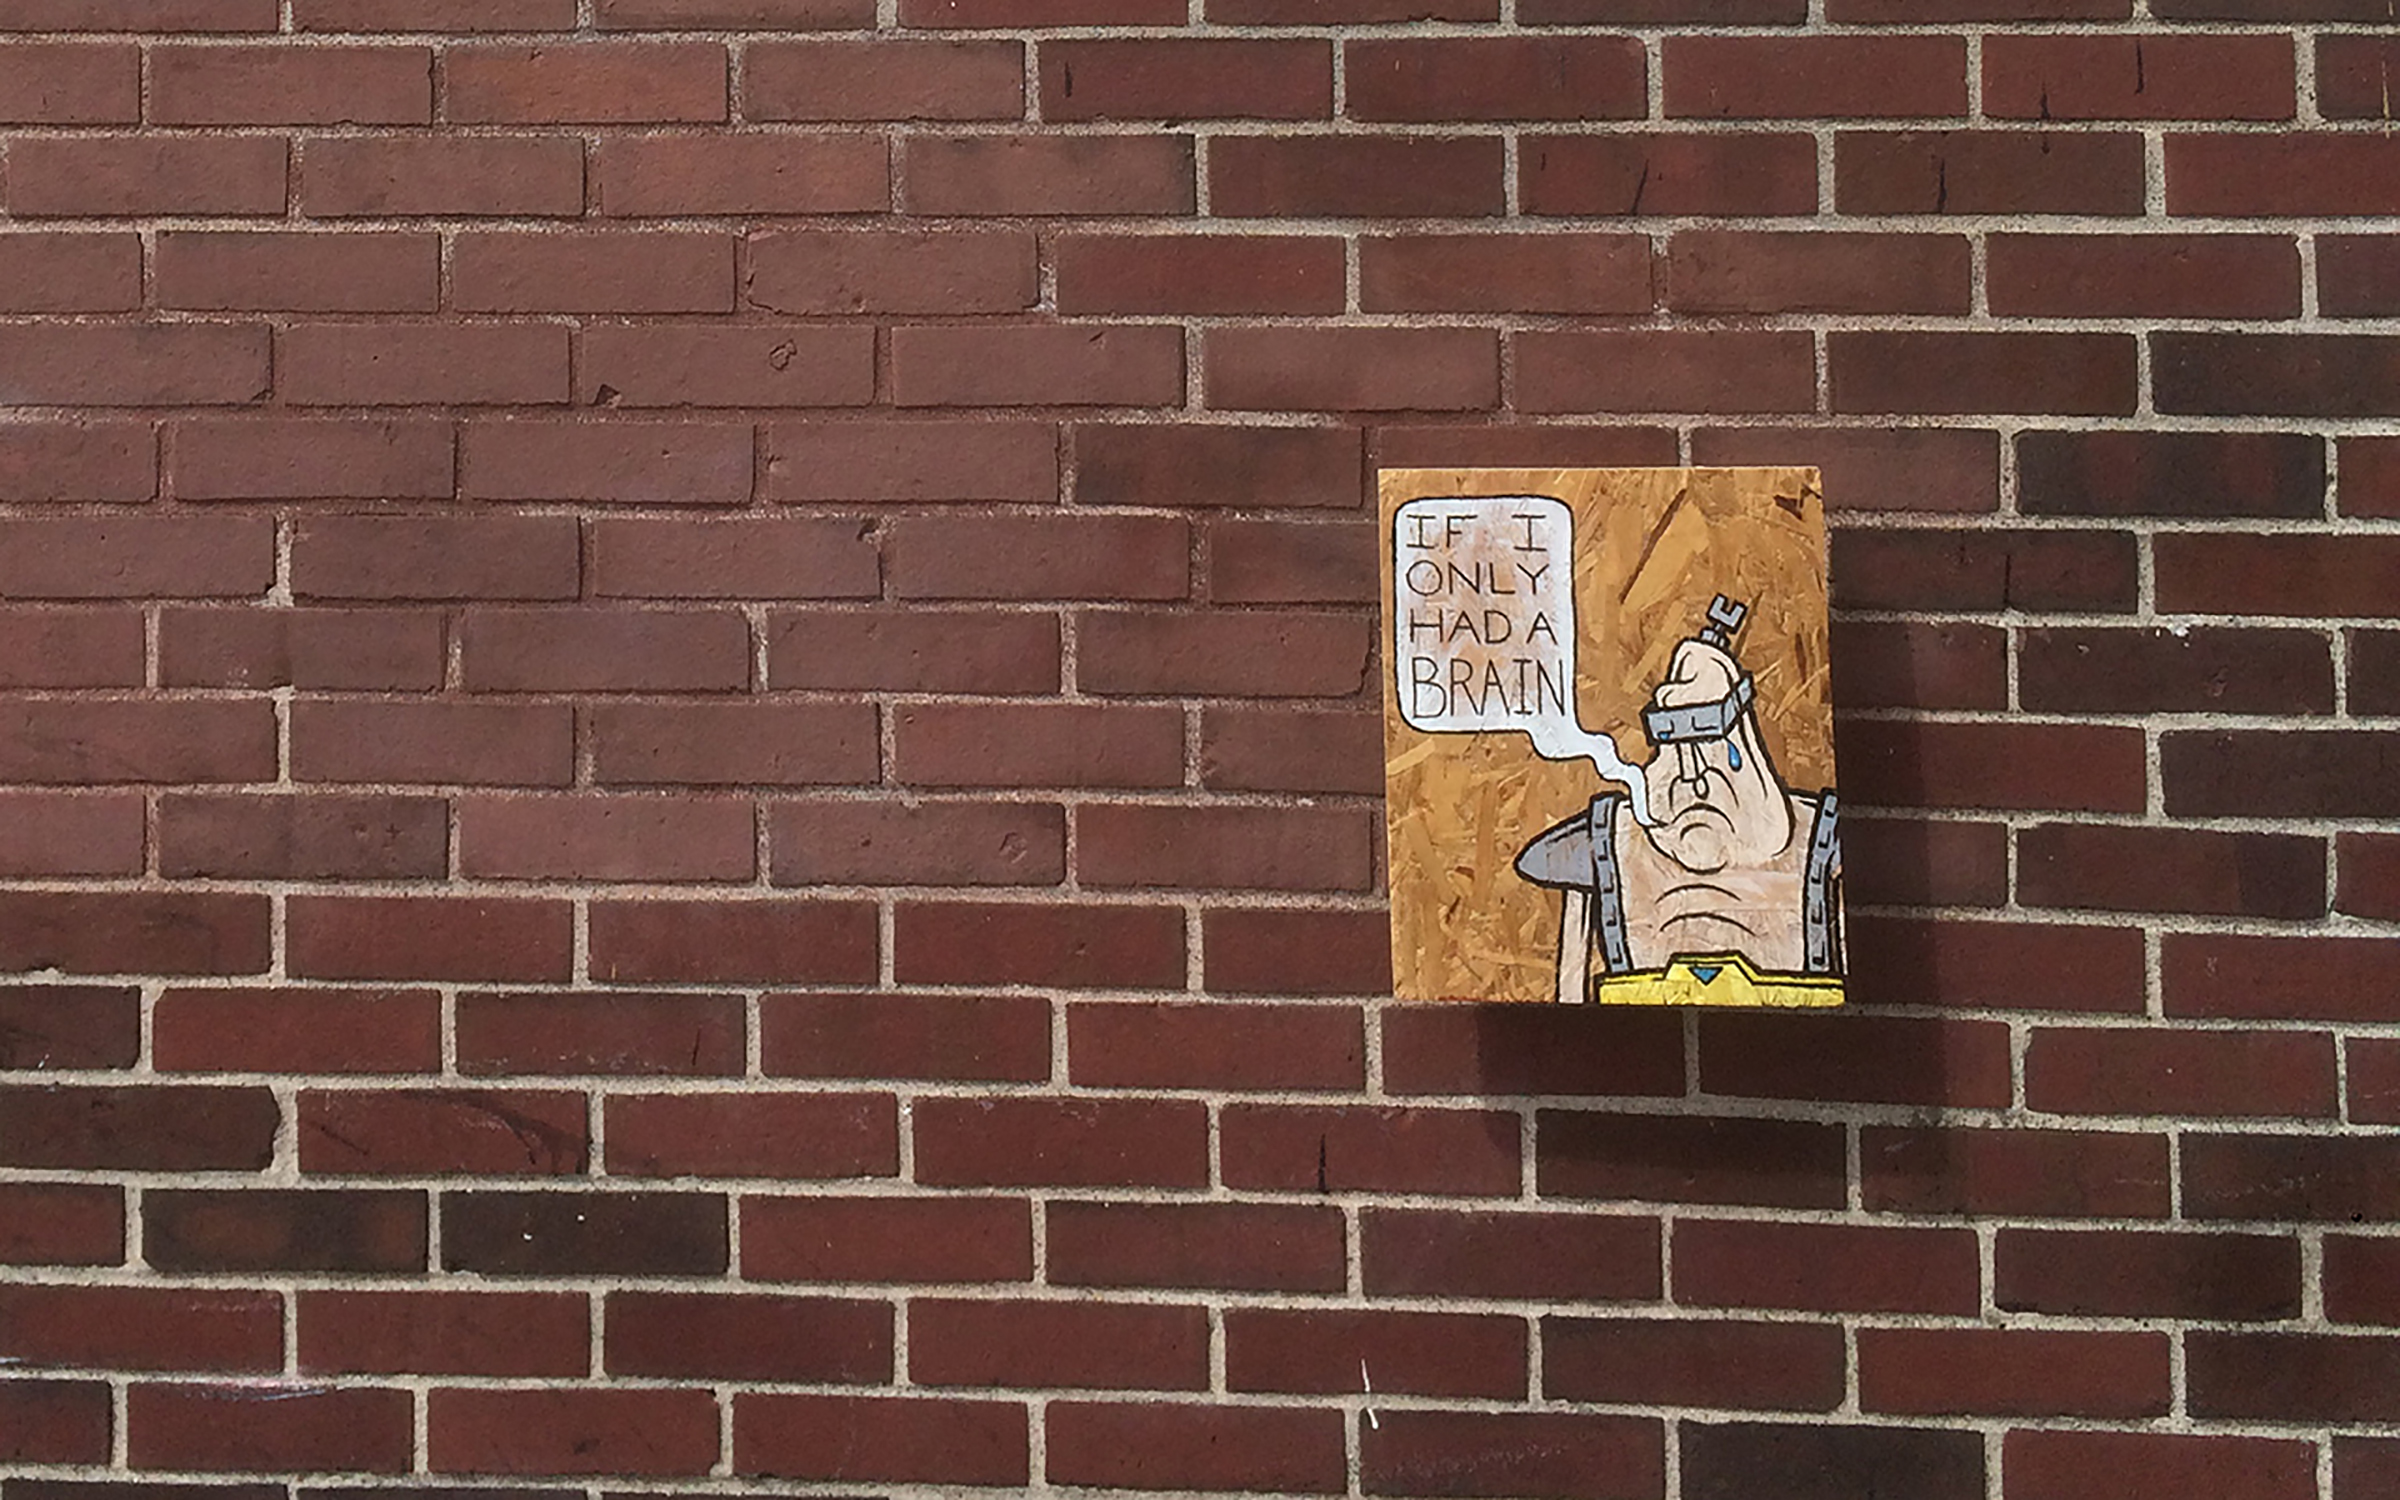 IF I
ONLY
HAD A
BRAIN